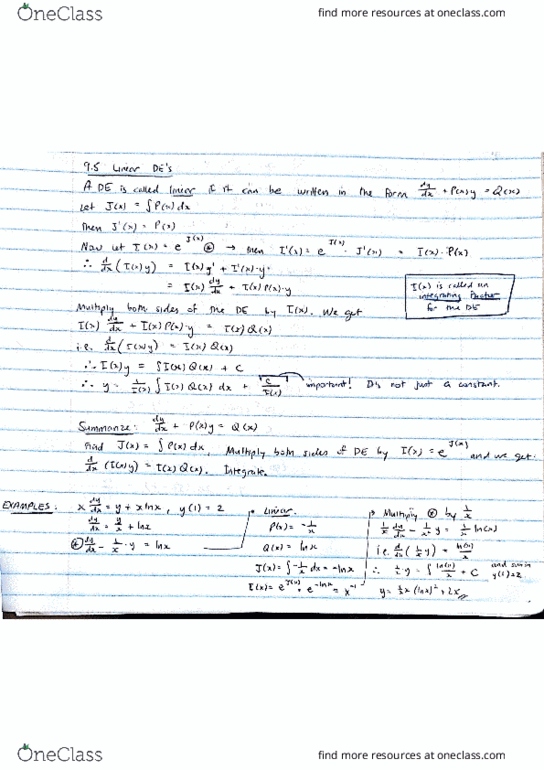 OneClass
find more resources at oneclass.com
9.5 Linear DE's
A DE is called linear if it can be written in the form dy/dx + P(x)y = Q(x)
Let J(x) = ∫P(x)dx
Then J'(x) = P(x)
Now let I(x) = e^J(x) ⊛ → then I'(x) = e^J(x) · J'(x) = I(x)·P(x)
∴ d/dx (I(x)y) = I(x)y' + I'(x)·y
= I(x) dy/dx + I(x)P(x)·y
I(x) is called an
integrating factor
for the DE
Multiply both sides of the DE by I(x). We get
I(x) dy/dx + I(x)P(x)·y = I(x)Q(x)
i.e. d/dx (I(x)y) = I(x)Q(x)
∴ I(x)y = ∫I(x)Q(x) + C
∴ y = 1/I(x) ∫ I(x)Q(x) dx + C/I(x) important! It's not just a constant.
Summarize: dy/dx + P(x)y = Q(x)
Find J(x) = ∫P(x)dx. Multiply both sides of DE by I(x) = e^J(x) and we get
d/dx (I(x)y) = I(x)Q(x). Integrate.
EXAMPLES: x dy/dx = y + x lnx, y(1) = 2
dy/dx = y/x + lnx
⊛ dy/dx - 1/x · y = lnx
Linear
P(x) = -1/x
Q(x) = lnx
J(x) = ∫-1/x dx = -lnx
I(x) = e^J(x) = e^-lnx = x^-1
Multiply ⊛ by 1/x
1/x dy/dx - 1/x² y = 1/x ln(x)
i.e. d/dx (1/x y) = ln(x)/x
∴ 1/x · y = ∫ ln(x)/x + C and
y(1)=2
y = 1/2 x (lnx)² + 2x
OneClass
find more resources at oneclass.com